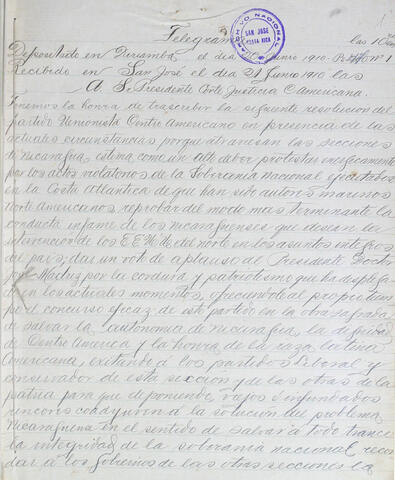 1
Telegrama
las 10
Depositado en Diriamba el dia Junio 1910. Nº 1
ARCHIVO NACIONAL
SAN JOSÉ
COSTA RICA
Recibido en San José el dia 21 Junio 1910 las
A S. Presidente Corte Justicia C. Americana.
Tenemos la honra de trascribir la siguiente resolucion del
partido Unionista Centro Americano en presencia de las
actuales circunstancias porque atraviesan las secciones
de Nicaragua, estima como un alto deber protestar enérgicamente
por los actos violatorios de la Soberanía Nacional ejecutados
en la Costa Atlantica de que han sido autores marinos
Norte Americanos, reprobar del modo mas terminante la
conducta infame de los nicaragüenses que desean la
intervencion de los E.E. U.U. del norte en los asuntos internos
del pais; dar un voto de aplauso al Presidente Doctor
José Madriz por la cordura y patriotismo que ha desplega
do en los actuales momentos, ofreciendole al propio tiempo
el concurso eficaz de este partido en la obra sagrada
de salvar la autonomia de Nicaragua, la dignidad
de Centro America y la honra de la raza latina
Americana, exitando á los partidos liberal y
conservador de esta seccion y de las otras de la
patria para que deponiendo viejos é infundados
rencores coadyuven á la solucion del problema
Nicaragüense en el sentido de salvar á todo trance
la integridad de la soberanía nacional recor
dar á los gobiernos de las otras secciones la